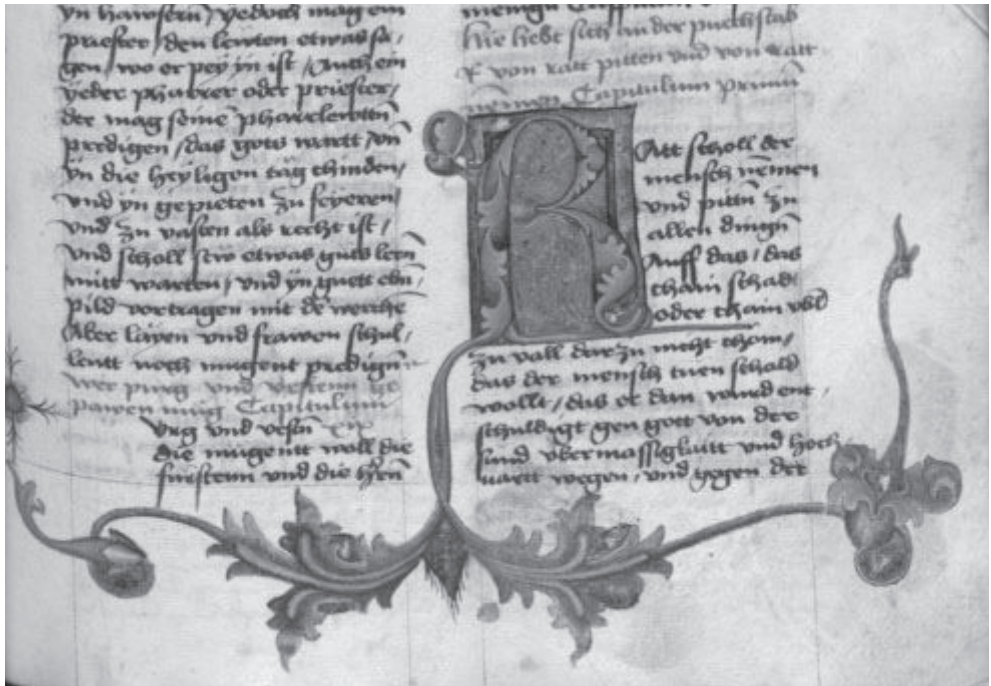 yn hawsern / yedoch mag ein
priester / den lewten etwas sa /
gen / wo er pey yn ist / Auch ein
yeder pharrer oder priester /
der mag seine pharrlewttn̄
predigen / das gots wartt / vn̄
yn die heyligen tag chünden /
vnd yn gepieten zu feyeren /
vnd zu vasten als recht ist /
vnd scholl sew etwas guts lern̄
mitt warten / vnd yn guett ebn̄ /
pild vortragen mit de werchē
Aber layen vnd frawen schul /
leutt noch mugent predign̄
wer purg vnd vestenn ge
pawen mug Capitulum
Urg vnd vestn̄
die mugentt woll die
fürstenn vnd die hern̄
Hie hebt sich an der puechstab
R von ratt pitten vnd von ratt
nemen Capitulum primū
RAtt scholl der
mensch nemen
vnd pittn̄ zu
allen dingn̄
Auff das / das
chain schad /
oder chain vbl
zu vall dar zu nicht chöm /
das der mensch tuen schold
wollt / das er dan wurd ent /
schuldigt gen gott von der
sund vbermassigkaitt vnd hoch
uartt wegen / vnd gegen der